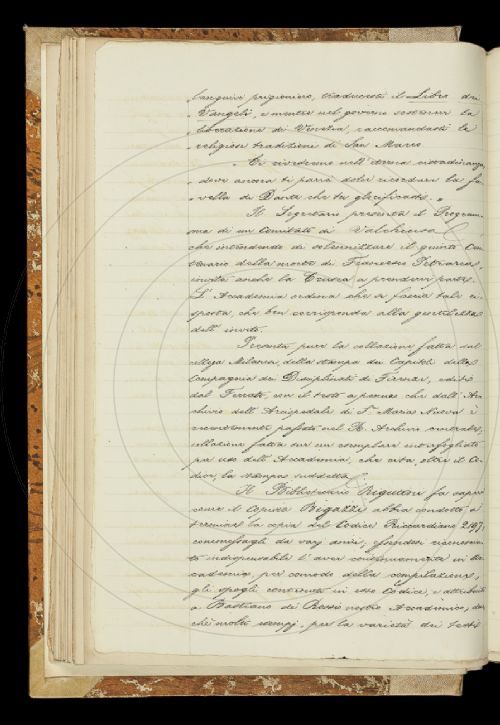 " seguivi prigioniero, traducesti il Libro dei
" Vangeli, e mentre nel governo sostenevi la
" liberazione di Venezia, raccomandasti le
" religiose tradizioni di San Marco
" Ci rivedremo nell' eterea cittadinanza,
" dove ancora ti parrà dolce ricordare la fa-
" vella di Dante che tu glorificasti. "
Il Segretario presenta il Program-
ma di un Comitato di Valchiusa
che intendendo di solennizzare il quinto Cen-
tenario della morte di Francesco Petrarca,
invita anche la Crusca a prendervi parte.
L' Accademia ordina che si faccia tale ri-
sposta, che ben corrisponda alla gentilezza
dell' invito.
Presenta pure la collazione fatta dal
collega Milanesi, della stampa dei Capitoli della
Compagnia dei Disciplinati di Firenze, editi
dal Ferrato, con il testo a penna che dall' Ar-
chivio dell' Arcispedale di S. Maria Nuova è
recentemente passato nel R. Archivio centrale;
collazione fatta su un esemplare interfogliato
per uso dell' Accademia, che cita, oltre il Co-
dice, la stampa suddetta.
Il Bibliotecario Rigutini fa saper
come il Copista Bigazzi abbia condotto a
termine la copia del Codice Riccardiano 2197,
commessagli da vary anni; essendosi riconosciu-
to indispensabile l' aver continuamente in Ac-
cademia, per comodo della compilazione,
gli spogli contenuti in esso Codice, e attribuiti
a Bastiano de' Rossi nostro Accademico, dac-
chè molti esempj, per la varietà dei testi